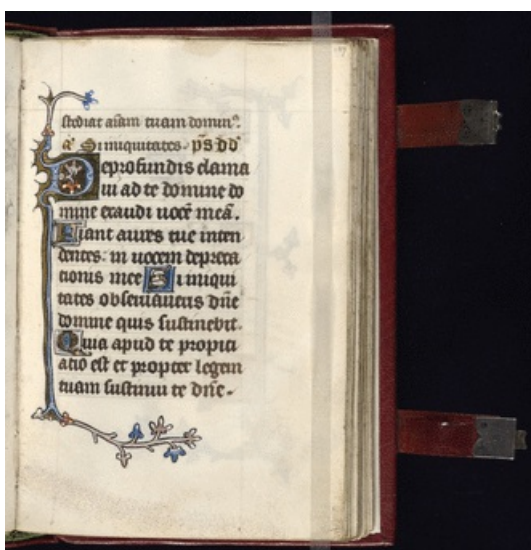 stodiat aīam tuam domin⁹.
a͞ Si iniquitates. p̄s dd
De profundis clama
ui ad te domine do
mine exaudi uocē meā.
Fiant aures tue inten
dentes: in uocem depreca
tionis mee Si iniqui
tates obseruaueris dn̄e
domine quis sustinebit.
Quia apud te propici
atio est et propter legem
tuam sustinui te dn̄e.